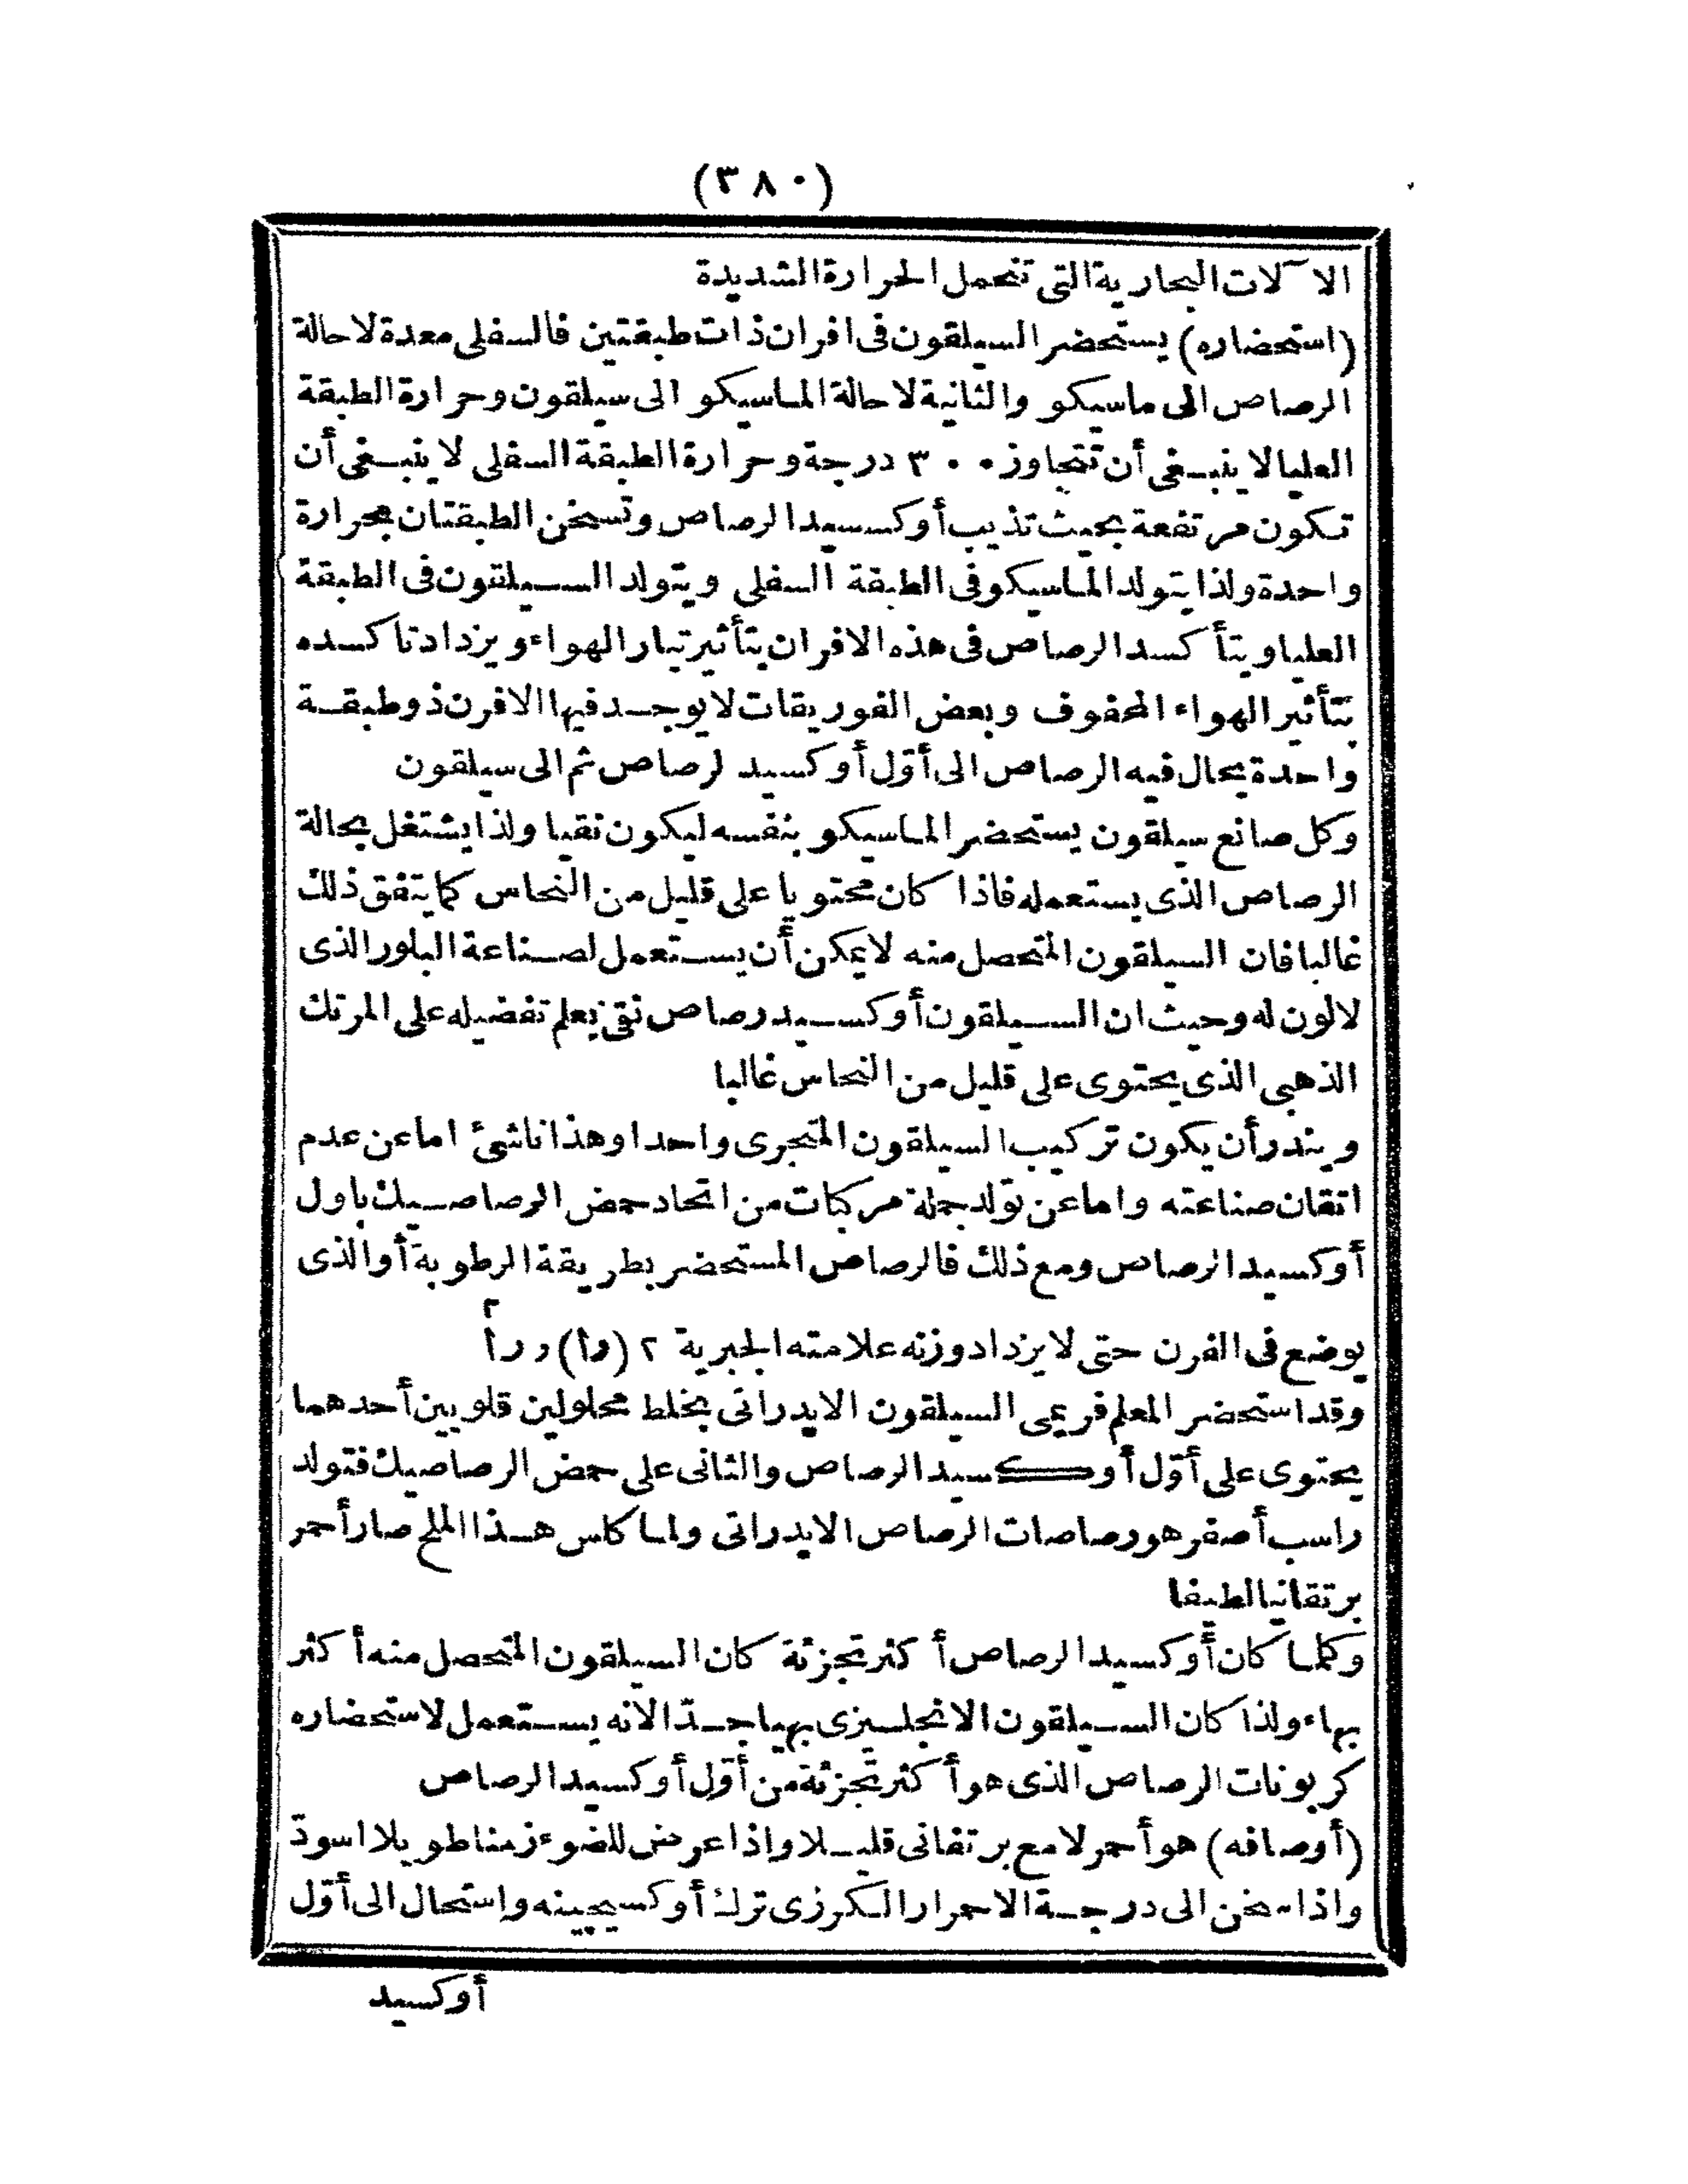 (٣٨٠)
الاٰلات البخارية التى تتحمل الحرارة الشديدة
(استحضاره) يستحضر السيلقون فى افران ذات طبقتين فالسفلى معدة لاحالة
الرصاص الى ماسيكو والثانية لاحالة الماسيكو الى سيلقون وحرارة الطبقة
العليا لا ينبغى أن تتجاوز ٣٠٠ درجة وحرارة الطبقة السفلى لا ينبغى أن
تكون مرتفعة بحيث تذيب أوكسيد الرصاص وتسخن الطبقتان بحرارة
واحدة ولذا يتولد الماسيكو فى الطبقة السفلى ويتولد السيلقون فى الطبقة
العليا ويتأكسد الرصاص فى هذه الافران بتأثير تيار الهواء ويزداد تاكسده
بتأثير الهواء المحفوف وبعض الفوريقات لا يوجد فيها الافرن ذو طبقة
واحدة يحال فيه الرصاص الى أوّل أوكسيد لرصاص ثم الى سيلقون
وكل صانع سيلقون يستحضر الماسيكو بنفسه ليكون نقيا ولذا يشتغل بحالة
الرصاص الذى يستعمله فاذا كان محتويا على قليل من النحاس كما يتفق ذلك
غالبا فان السيلقون المتحصل منه لا يمكن أن يستعمل لصناعة البلور الذى
لا لون له وحيث ان السيلقون أوكسيد رصاص نقى يعلم تفضيله على المرتك
الذهبى الذى يحتوى على قليل من النحاس غالبا
ويندر أن يكون تركيب السيلقون المتجرى واحدا وهذا ناشئ اما عن عدم
اتقان صناعته واما عن تولد جملة مركبات من اتحاد حمض الرصاصيك باول
أوكسيد الرصاص ومع ذلك فالرصاص المستحضر بطريقة الرطوبة أو الذى
يوضع فى الفرن حتى لا يزداد وزنه علامته الجبرية ٢ (را) ر رأ٢
وقد استحضر المعلم فريمى السيلقون الايدراتى بخلط محلولين قلويين أحدهما
يحتوى على أوّل أوكسيد الرصاص والثانى على حمض الرصاصيك فتولد
راسب أصفر هو رصاصات الرصاص الايدراتى ولما كلس هذا الملح صار أحمر
برتقانيا لطيفا
وكلما كان أوكسيد الرصاص أكثر تجزئة كان السيلقون المتحصل منه أكثر
بهاء ولذا كان السيلقون الانجليزى بهيا جدّا لانه يستعمل لاستحضاره
كربونات الرصاص الذى هو أكثر تجزئة من أوّل أوكسيد الرصاص
(أوصافه) هو أحمر لامع برتقانى قليلا واذا عرض للضوء زمنا طويلا اسودّ
واذا سخن الى درجة الاحمرار الكرزى ترك أوكسيجينه واستحال الى أوّل
أوكسيد